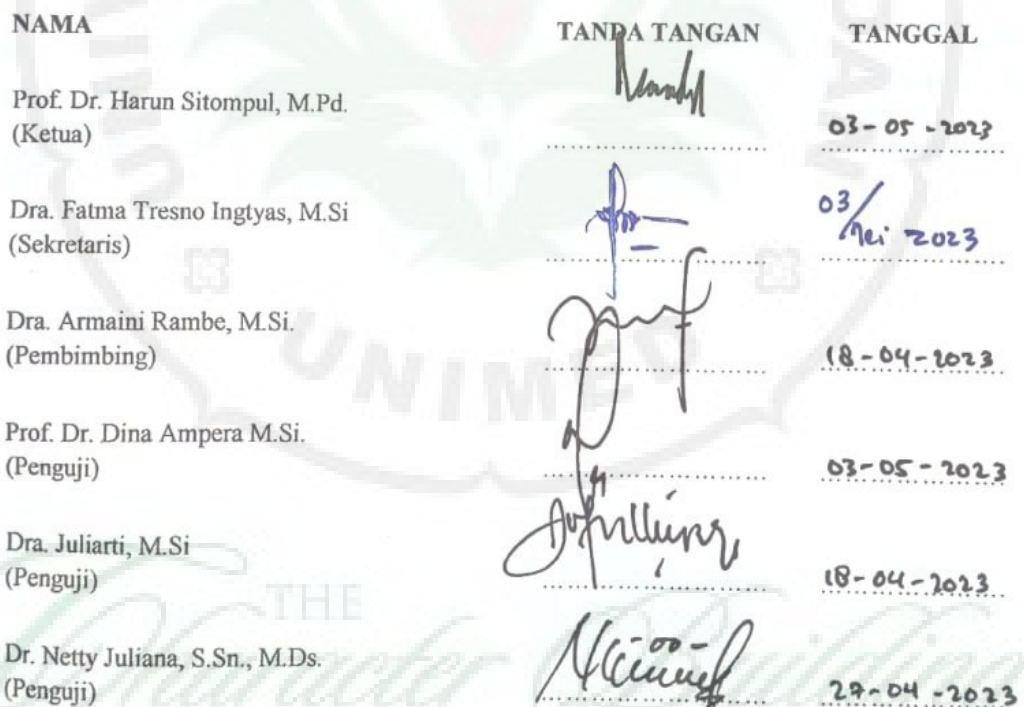 NAMA TANDA TANGAN TANGGAL
Prof. Dr. Harun Sitompul, M.Pd.
(Ketua) 03-05-2023
Dra. Fatma Tresno Ingtyas, M.Si 03/Mei 2023
(Sekretaris)
Dra. Armaini Rambe, M.Si.
(Pembimbing) 18-04-2023
UNIMED
Prof. Dr. Dina Ampera M.Si.
(Penguji) 03-05-2023
Dra. Juliarti, M.Si
(Penguji) 18-04-2023
THE
Character Building
Dr. Netty Juliana, S.Sn., M.Ds.
(Penguji) 27-04-2023